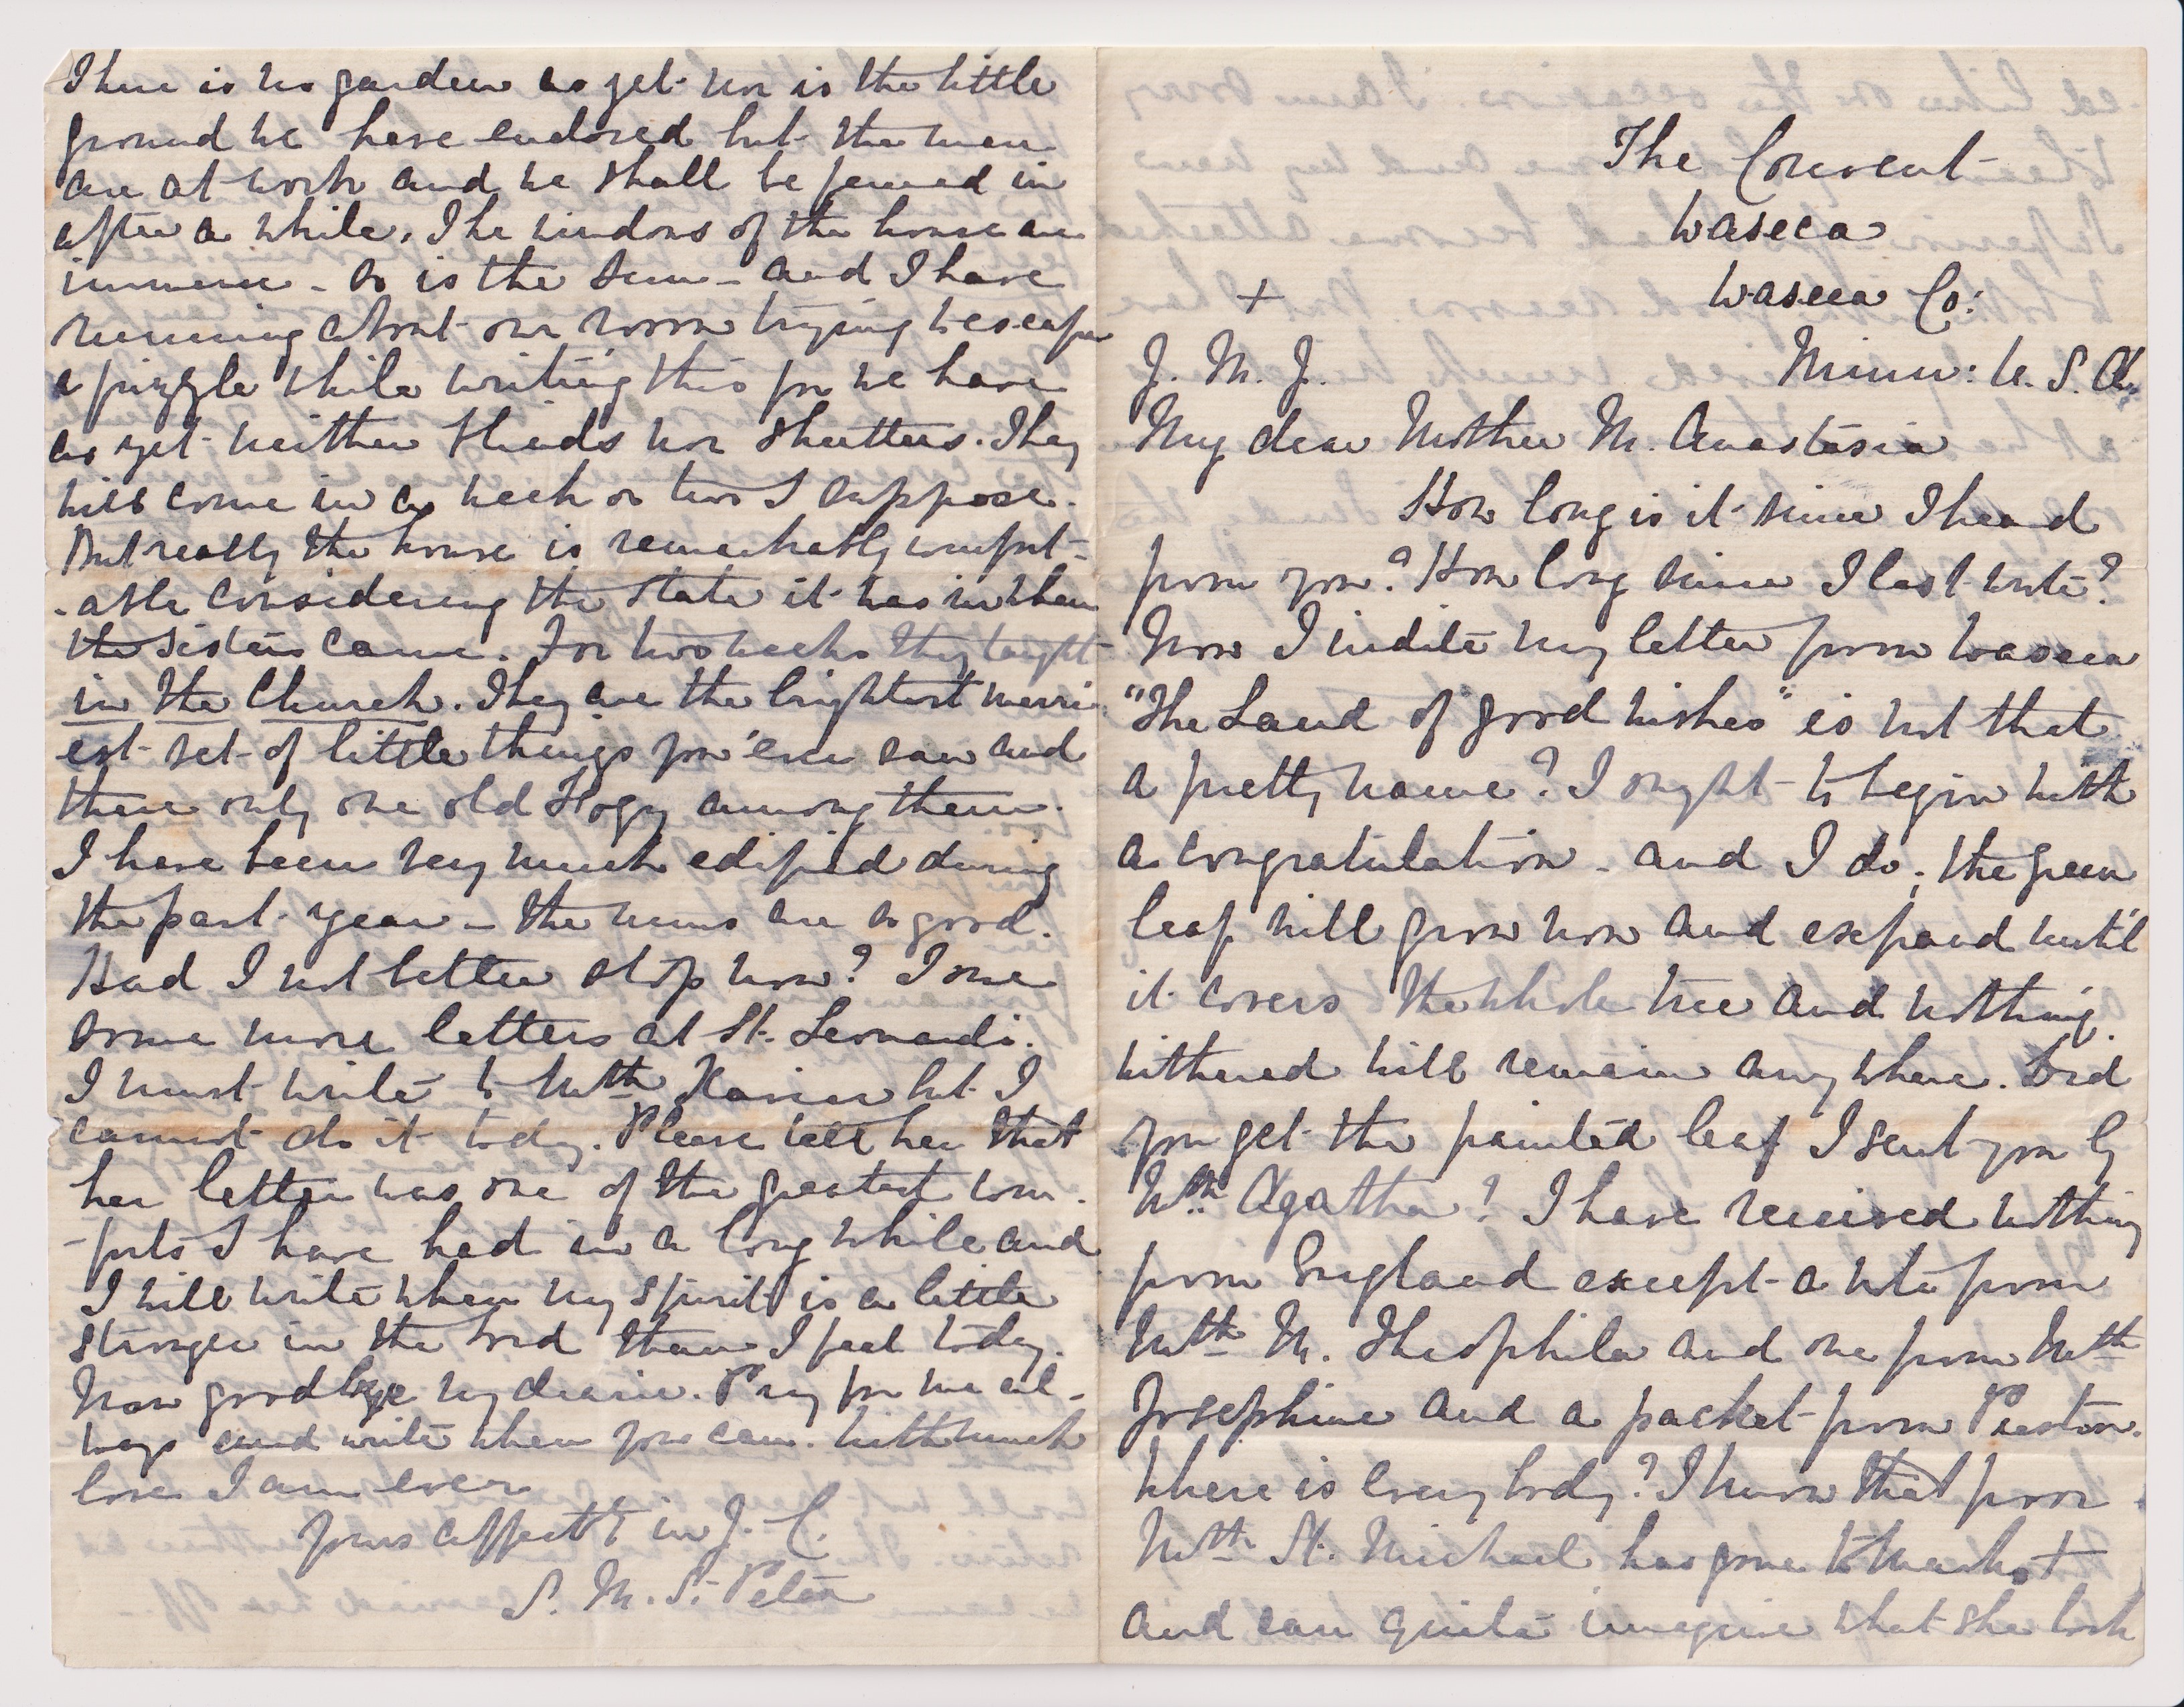 The Convent
Waseca
Waseca Co:
+
J. M. J.
Minn: U. S. A.
My dear Mother M. Anastasia
How long is it since I heard
from you? How long since I last wrote?
Now I indite my letter from Waseca
"The Land of good wishes" is not that
a pretty name? I ought to begin with
a congratulation - and I do; the green
leaf will grow now and expand until
it covers the whole tree and nothing
withered will remain anywhere. Did
you get the painted leaf I sent you by
Mth Agatha? I have received nothing
from England except a note from
Mth M. Theophila and one from Mth
Josephine and a packet from Preston.
Where is every body? I know that poor
Mth St. Michael has gone to
and can quite imagine what she took
There is no garden as yet nor is the little
ground we have enclosed but the men
are at work and we shall be fenced in
after a while. The windows of the house are
immense - so is the sun - and I have
running about our room trying to escape
a frizzle while writing this for we have
as yet neither blinds nor shutters. They
will come in a week or two I suppose.
But really the house is remarkably comfort-
-able considering the state it was in when
the sisters came. For two weeks they taught
in the Church. They are the brightest merri
est set of little things you ever saw and
there only one old Fogy among them.
I have been very much edified during
the past year - the nuns are so good.
Had I not better stop now? I owe
some more letters at St. Leonards.
I must write to Mth Xavier but I
cannot do it today. Please tell her that
her letter was one of the greatest com-
-forts I have had in a long while and
I will write when my spirit is a little
stronger in the Lord than I feel today.
Now goodbye my dearie. Pray for me al-
ways and write when you can. With much
love I am ever
yours affectly in J. C.
S. M. St. Peter